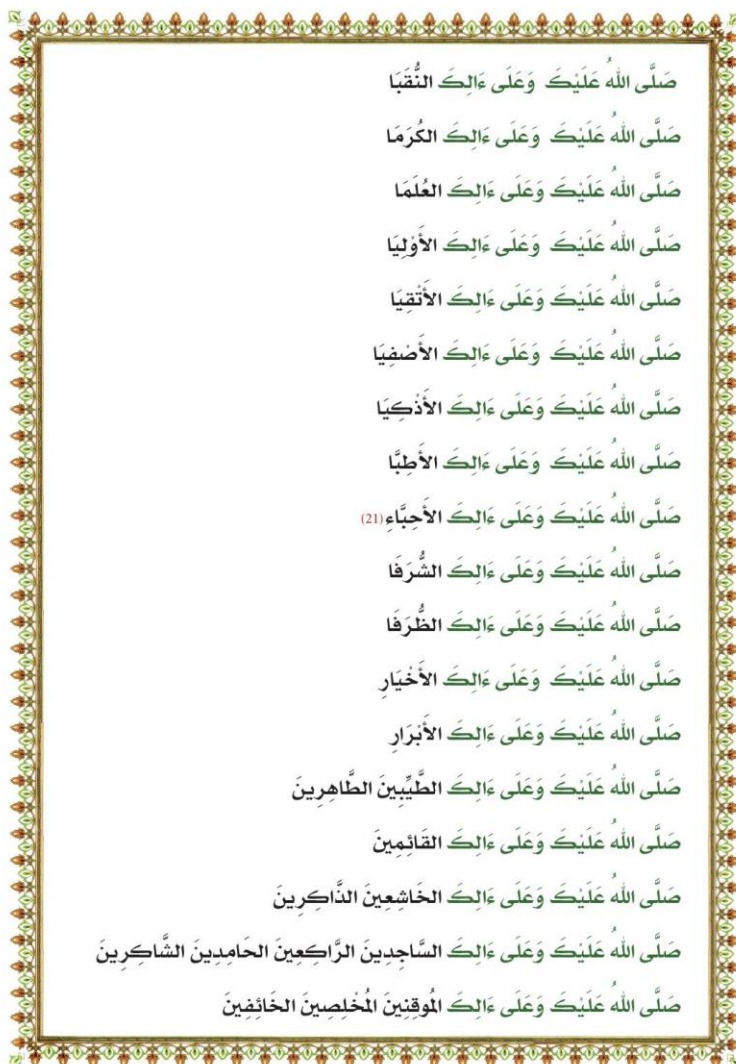 صَلَّى اللهُ عَلَيْكَ وَعَلَى ءَالِكَ النُّقَبَا
صَلَّى اللهُ عَلَيْكَ وَعَلَى ءَالِكَ الكُرَمَا
صَلَّى اللهُ عَلَيْكَ وَعَلَى ءَالِكَ العُلَمَا
صَلَّى اللهُ عَلَيْكَ وَعَلَى ءَالِكَ الأَوْلِيَا
صَلَّى اللهُ عَلَيْكَ وَعَلَى ءَالِكَ الأَتْقِيَا
صَلَّى اللهُ عَلَيْكَ وَعَلَى ءَالِكَ الأَصْفِيَا
صَلَّى اللهُ عَلَيْكَ وَعَلَى ءَالِكَ الأَذْكِيَا
صَلَّى اللهُ عَلَيْكَ وَعَلَى ءَالِكَ الأَطِبَّا
صَلَّى اللهُ عَلَيْكَ وَعَلَى ءَالِكَ الأَحِبَّاءِ (21)
صَلَّى اللهُ عَلَيْكَ وَعَلَى ءَالِكَ الشُّرَفَا
صَلَّى اللهُ عَلَيْكَ وَعَلَى ءَالِكَ الظُّرَفَا
صَلَّى اللهُ عَلَيْكَ وَعَلَى ءَالِكَ الأَخْيَارِ
صَلَّى اللهُ عَلَيْكَ وَعَلَى ءَالِكَ الأَبْرَارِ
صَلَّى اللهُ عَلَيْكَ وَعَلَى ءَالِكَ الطَّيِّبِينَ الطَّاهِرِينَ
صَلَّى اللهُ عَلَيْكَ وَعَلَى ءَالِكَ القَائِمِينَ
صَلَّى اللهُ عَلَيْكَ وَعَلَى ءَالِكَ الخَاشِعِينَ الذَّاكِرِينَ
صَلَّى اللهُ عَلَيْكَ وَعَلَى ءَالِكَ السَّاجِدِينَ الرَّاكِعِينَ الحَامِدِينَ الشَّاكِرِينَ
صَلَّى اللهُ عَلَيْكَ وَعَلَى ءَالِكَ المُوقِنِينَ المُخْلِصِينَ الخَائِفِينَ